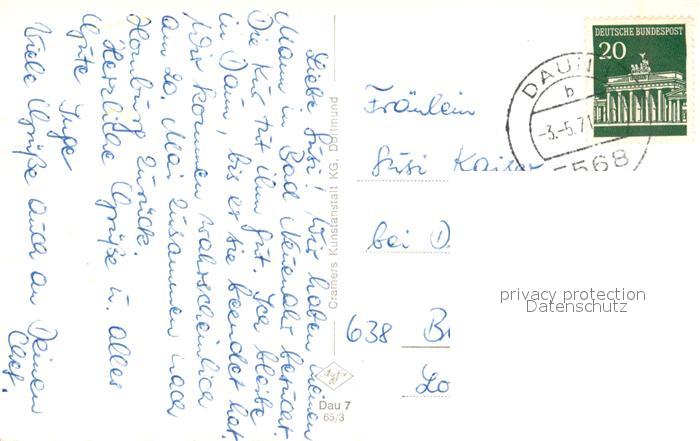 Liebe Susi! Wir haben meinen
Mann in Bad Neuenahr besucht.
Die Kur tut ihm gut. Ich bleibe
in Daun, bis er sie beendet hat.
Wir kommen wahrscheinlich
am 20. Mai zusammen nach
Homburg zurück.
Herzliche Grüße u. alles
Gute Inge
Viele Grüße auch an Deinen
Chef.
Cramers Kunstanstalt KG, Dortmund
Dau 7
65/3
DEUTSCHE BUNDESPOST
20
DAUN
b
-3.-5.71
568
Fräulein
Susi Kaiser
bei D
638 B
Lo
privacy protection
Datenschutz